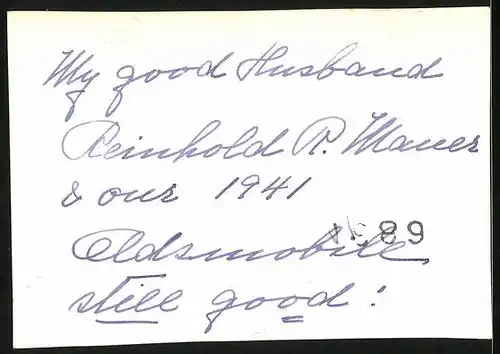 My good Husband
Reinhold R. Maner
& our 1941
Oldsmobile
still good!